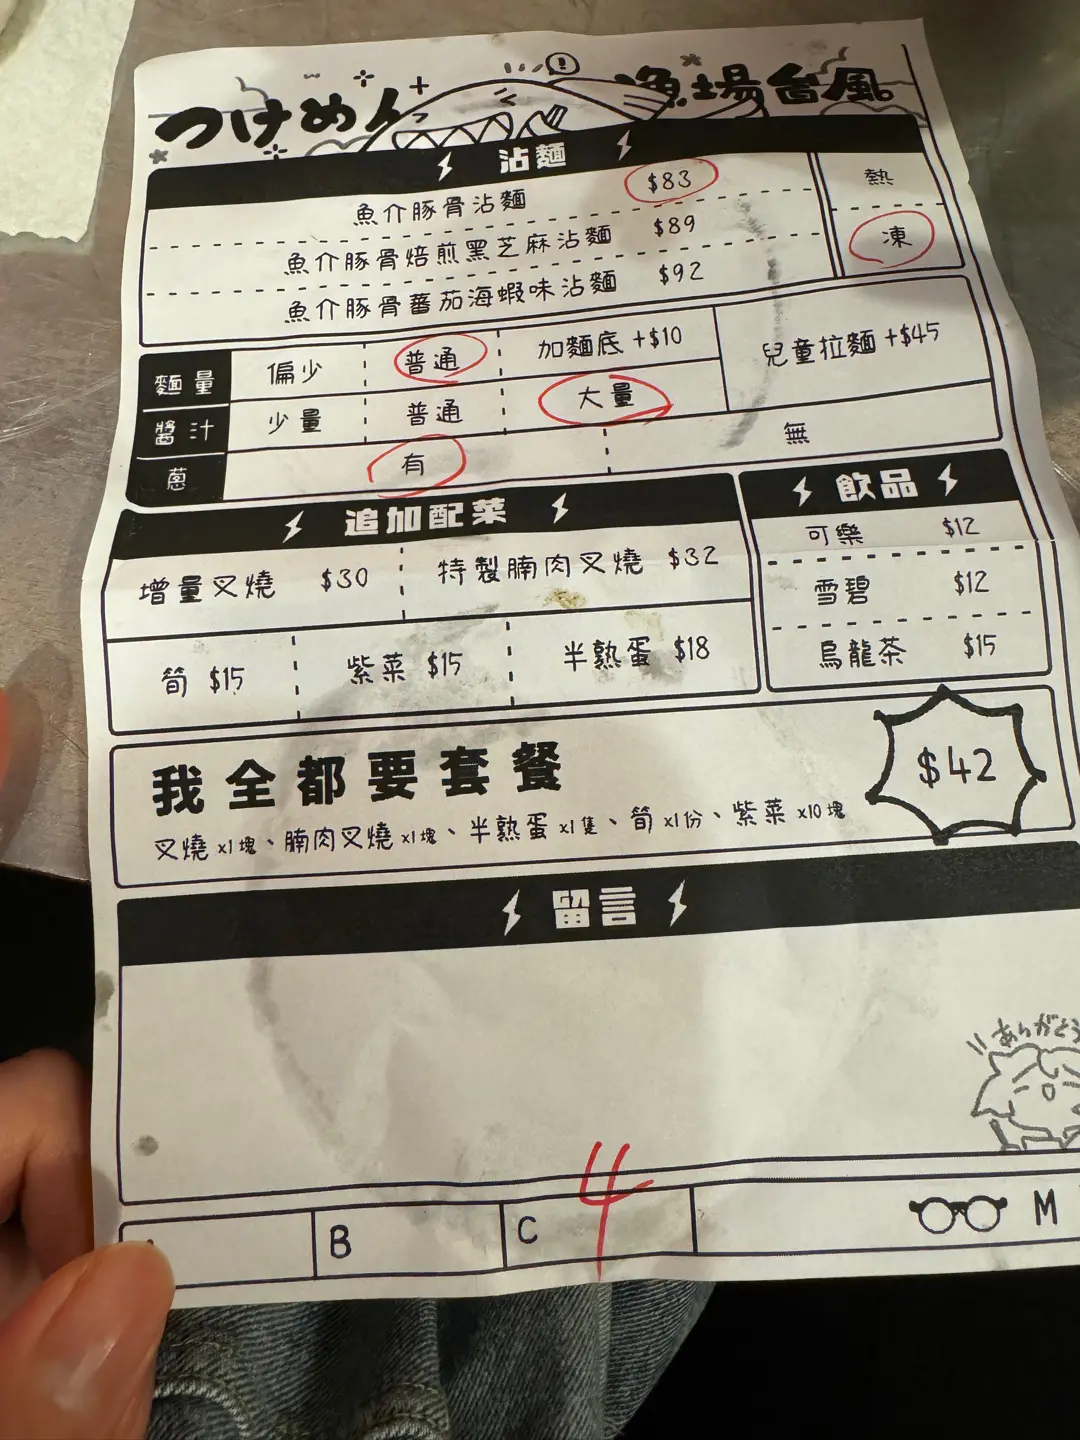 つけめん 漁場台風
沾麵
魚介豚骨沾麵 $83
魚介豚骨焙煎黑芝麻沾麵 $89
魚介豚骨蕃茄海蝦味沾麵 $92
熱
凍
麵量 偏少 普通 加麵底 +$10
兒童拉麵 +$45
醬汁 少量 普通 大量
蔥 有 無
追加配菜
增量叉燒 $30 特製腩肉叉燒 $32
筍 $15 紫菜 $15 半熟蛋 $18
飲品
可樂 $12
雪碧 $12
烏龍茶 $15
我全都要套餐 $42
叉燒 x1塊、腩肉叉燒 x1塊、半熟蛋 x1隻、筍 x1份、紫菜 x10塊
留言
ありがとう
B C 4 M